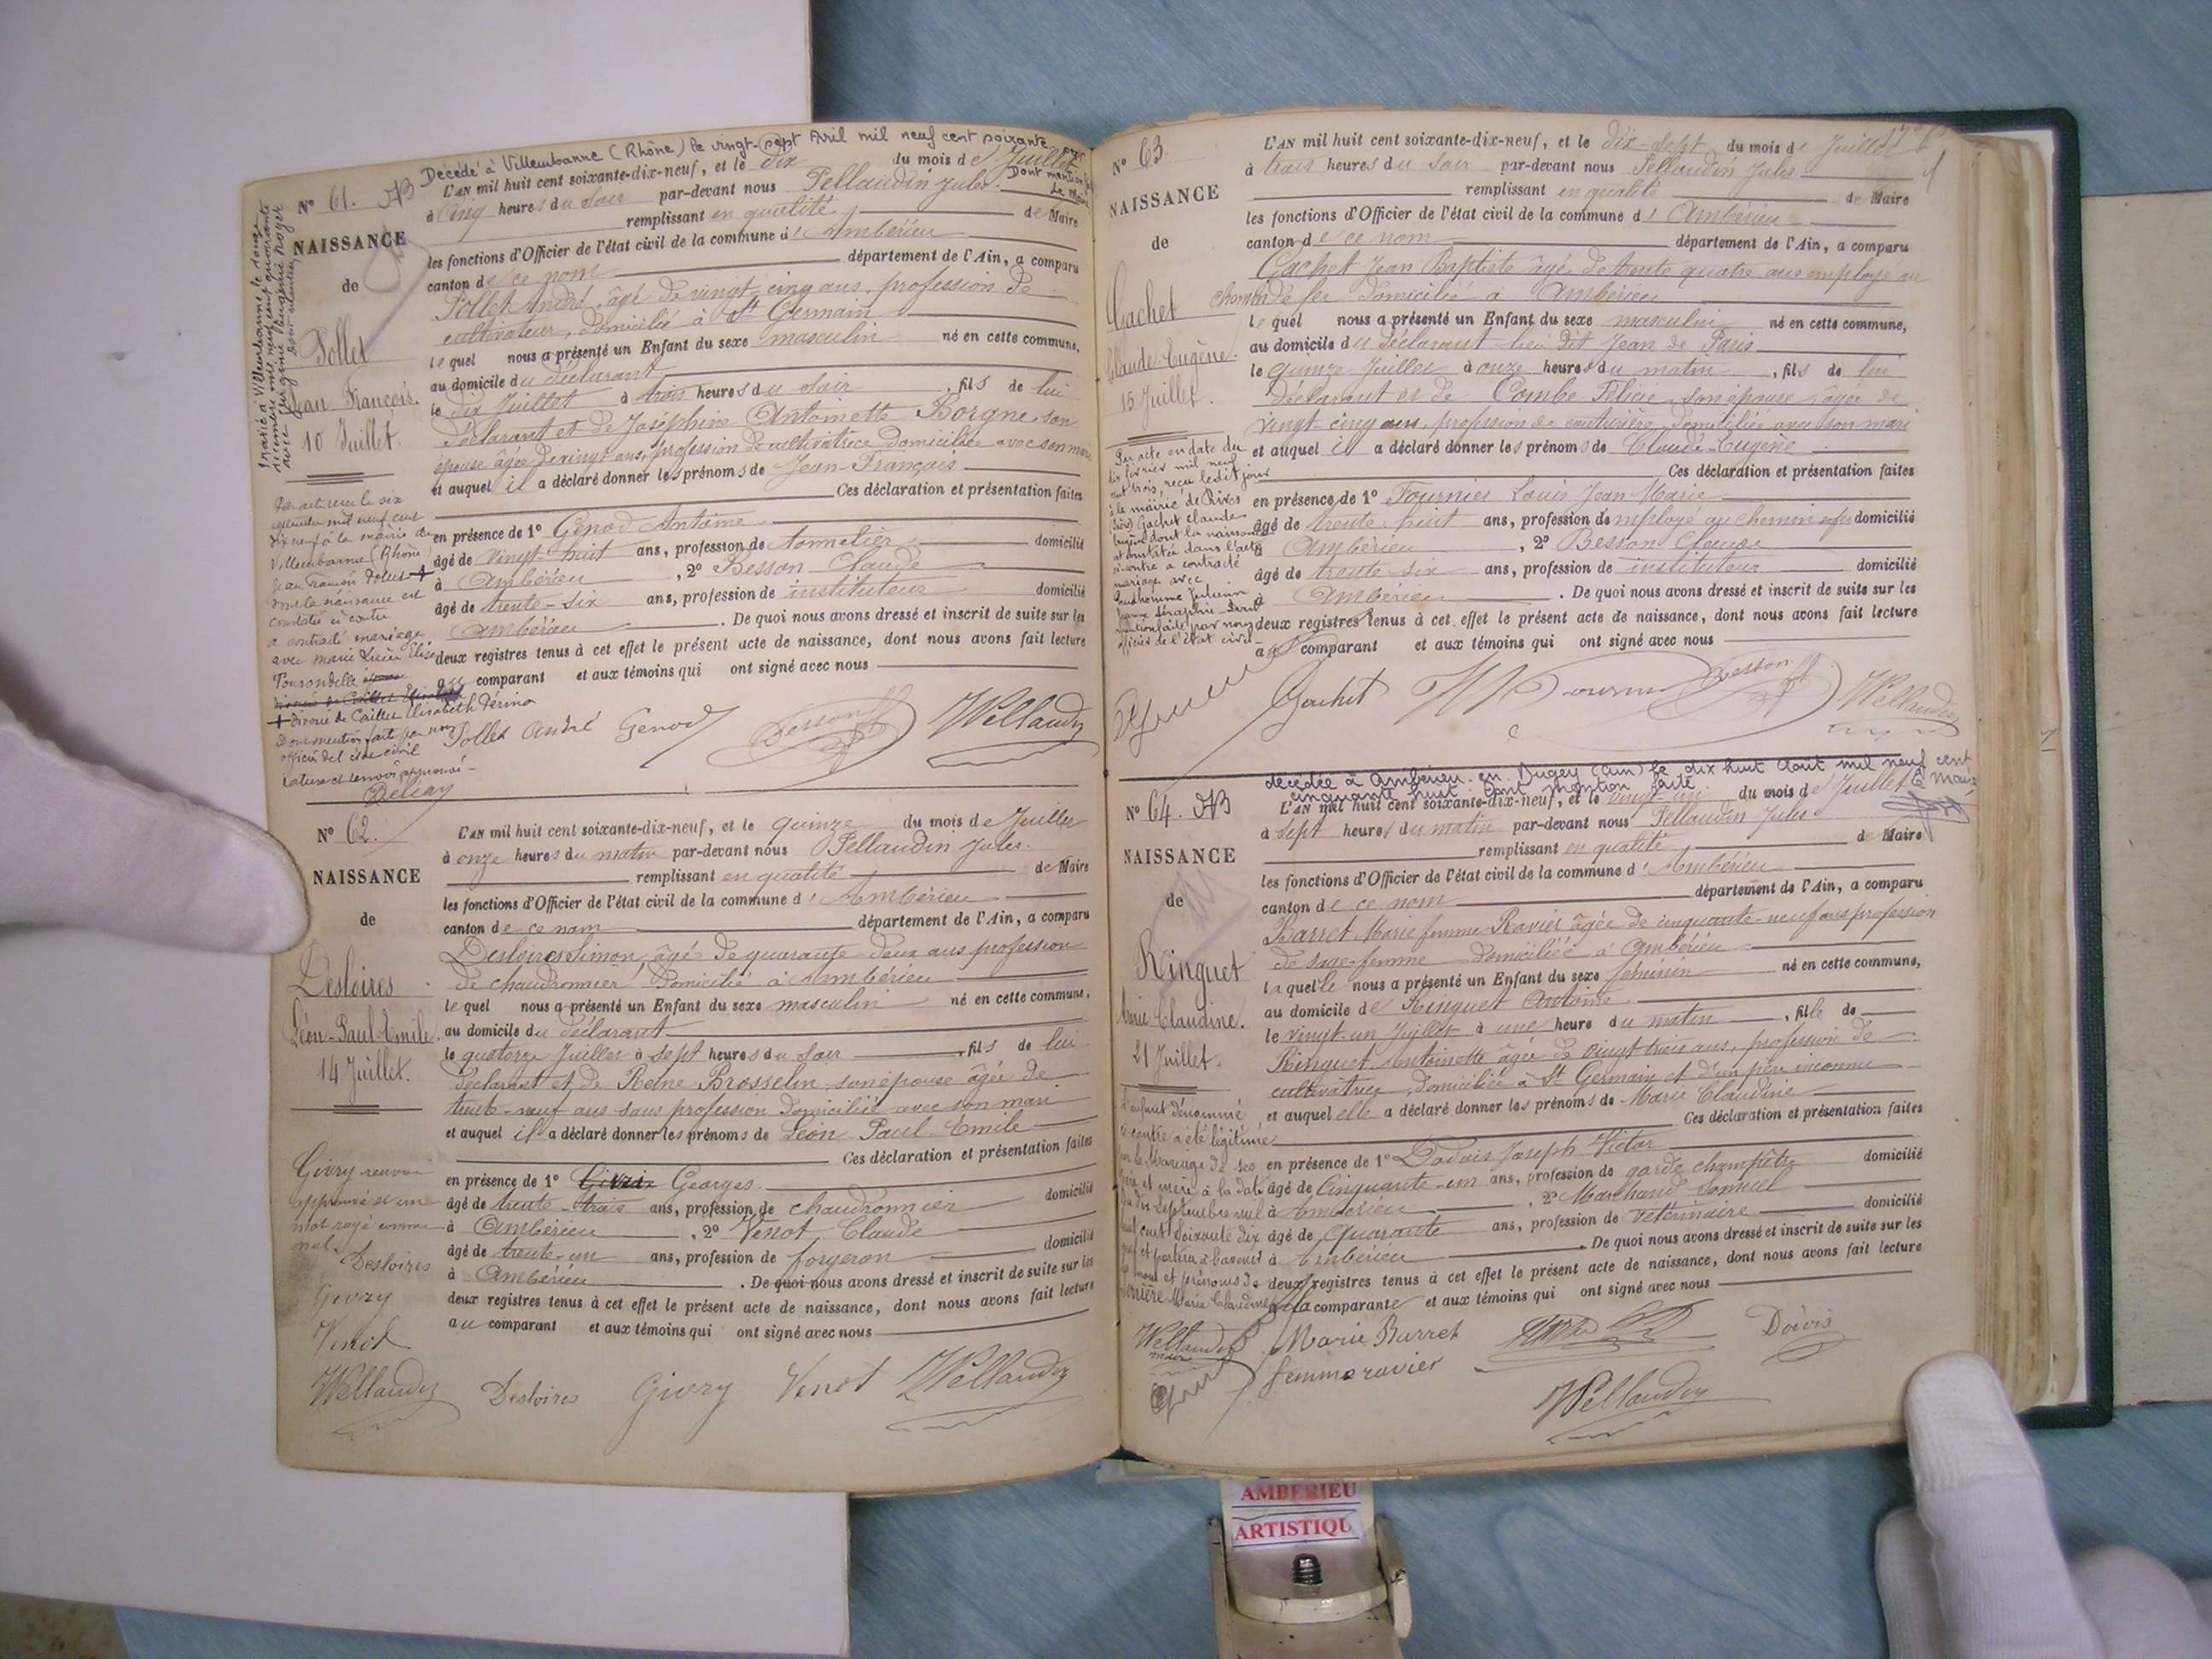 Décédé à Villeurbanne (Rhône) le vingt-sept Avril mil neuf cent soixante
Dont mention
Le Maire
N° 61.
NAISSANCE
de
Pollet
Jean-François.
10 Juillet.
L'AN mil huit cent soixante-dix-neuf, et le dix du mois de Juillet
à cinq heures du soir par-devant nous Pellaudin Jules
remplissant en qualité de Maire
les fonctions d'Officier de l'état civil de la commune d'Ambérieu
canton de ce nom département de l'Ain, a comparu
Pollet André, âgé de vingt-cinq ans, profession de
cultivateur, domicilié à St Germain
lequel nous a présenté un Enfant du sexe masculin né en cette commune,
au domicile du déclarant
le dix Juillet à trois heures du soir, fils de lui
déclarant et de Joséphine Antoinette Borgne, son
épouse âgée de vingt ans, profession de cultivatrice domiciliée avec son mari
et auquel il a déclaré donner les prénoms de Jean-François
Ces déclaration et présentation faites
en présence de 1° Genod Antoine
âgé de vingt-huit ans, profession de tonnelier domicilié
à Ambérieu, 2° Besson Claude
âgé de trente-six ans, profession de instituteur domicilié
Ambérieu. De quoi nous avons dressé et inscrit de suite sur les
deux registres tenus à cet effet le présent acte de naissance, dont nous avons fait lecture
au comparant et aux témoins qui ont signé avec nous
Pollet André Genod Besson JPellaudin
Marié à Villeurbanne le douze
décembre mil neuf cent quarante
avec Eugénie Royer
dont mention
Par acte reçu le six
septembre mil neuf cent
dix neuf à la mairie de
Villeurbanne (Rhône)
Jean François Pollet +
dont la naissance est
constatée ci contre
a contracté mariage
avec Marie Lucie Elise
Tonsondelle
+ divorcé de Caillet Elisabeth Périna
Dont mention faite par nous
officier de l'état civil
rature et renvoi approuvé
N° 62.
NAISSANCE
de
Desloires
Léon-Paul-Emile.
14 Juillet.
L'AN mil huit cent soixante-dix-neuf, et le quinze du mois de Juillet
à onze heures du matin par-devant nous Pellaudin Jules.
remplissant en qualité de Maire
les fonctions d'Officier de l'état civil de la commune d'Ambérieu
canton de ce nom département de l'Ain, a comparu
Desloires Simon, âgé de quarante deux ans profession
de chaudronnier domicilié à Ambérieu
lequel nous a présenté un Enfant du sexe masculin né en cette commune,
au domicile du déclarant
le quatorze Juillet à sept heures du soir, fils de lui
déclarant et de Reine Brosselin, son épouse âgée de
trente-neuf ans sans profession domiciliée avec son mari
et auquel il a déclaré donner les prénoms de Léon Paul Emile
Ces déclaration et présentation faites
en présence de 1° Georges
âgé de trente-trois ans, profession de chaudronnier domicilié
à Ambérieu, 2° Venot Claude
âgé de trente-un ans, profession de forgeron domicilié
à Ambérieu. De quoi nous avons dressé et inscrit de suite sur les
deux registres tenus à cet effet le présent acte de naissance, dont nous avons fait lecture
au comparant et aux témoins qui ont signé avec nous
Givry renvoi
approuvé et un
mot rayé comme
nul.
Desloires
Givry
Venot
JPellaudin Desloires Givry Venot JPellaudin
N° 63.
NAISSANCE
de
Gachet
Claude-Eugène.
15 Juillet.
L'AN mil huit cent soixante-dix-neuf, et le dix-sept du mois de Juillet
à trois heures du soir par-devant nous Pellaudin Jules
remplissant en qualité de Maire
les fonctions d'Officier de l'état civil de la commune d'Ambérieu
canton de ce nom département de l'Ain, a comparu
Gachet Jean Baptiste âgé de trente quatre ans employé au
chemin de fer domicilié à Ambérieu
lequel nous a présenté un Enfant du sexe masculin né en cette commune,
au domicile du déclarant lieu dit Jean de Paris
le quinze Juillet à onze heures du matin, fils de lui
déclarant et de Combe Félicie, son épouse, âgée de
vingt-cinq ans, profession de couturière, domiciliée avec son mari
et auquel il a déclaré donner les prénoms de Claude-Eugène
Ces déclaration et présentation faites
en présence de 1° Fournier Louis Jean Marie
âgé de trente huit ans, profession d'employé au chemin de fer domicilié
à Ambérieu, 2° Besson Claude
âgé de trente-six ans, profession de instituteur domicilié
à Ambérieu. De quoi nous avons dressé et inscrit de suite sur les
deux registres tenus à cet effet le présent acte de naissance, dont nous avons fait lecture
au comparant et aux témoins qui ont signé avec nous
Par acte en date du
dix février mil neuf
cent trois, reçu ledit jour
à la mairie de Rives
(Isère) Gachet Claude
Eugène dont la naissance
est constatée dans l'acte
ci-contre a contracté
mariage avec
Jeanne Séraphie
mention faite par nous
officier de l'état civil
Gachet Besson JPellaudin
décédée à Ambérieu-en-Bugey (Ain) le dix huit Août mil neuf cent
cinquante huit. Dont mention faite
N° 64.
NAISSANCE
de
Ringuet
Marie Claudine.
21 Juillet.
L'AN mil huit cent soixante-dix-neuf, et le vingt-un du mois de Juillet
à sept heures du matin par-devant nous Pellaudin Jules
remplissant en qualité de Maire
les fonctions d'Officier de l'état civil de la commune d'Ambérieu
canton de ce nom département de l'Ain, a comparu
Barret Marie femme Ravier âgée de cinquante-neuf ans profession
de sage-femme domiciliée à Ambérieu
laquelle nous a présenté un Enfant du sexe féminin né en cette commune,
au domicile de Ringuet Antoine
le vingt-un Juillet à une heure du matin, fille de
Ringuet Antoinette âgée de vingt trois ans, profession de
cultivatrice, domiciliée à St Germain et d'un père inconnu
et auquel elle a déclaré donner les prénoms de Marie Claudine
Ces déclaration et présentation faites
en présence de 1° Joseph Victor
âgé de cinquante-un ans, profession de garde champêtre domicilié
à Ambérieu, 2° Marchand Samuel
âgé de quarante ans, profession de vétérinaire domicilié
à Ambérieu. De quoi nous avons dressé et inscrit de suite sur les
deux registres tenus à cet effet le présent acte de naissance, dont nous avons fait lecture
à la comparante et aux témoins qui ont signé avec nous
L'enfant dénommé
ci-contre a été légitimé
par le Mariage de ses
père et mère à la date
du dix Septembre mil
huit cent soixante dix
neuf et portera à l'avenir
les noms et prénoms de
Marie Claudine
JPellaudin
maire
Marie Barret
femme ravier
JPellaudin
AMBERIEU
ARTISTIQU